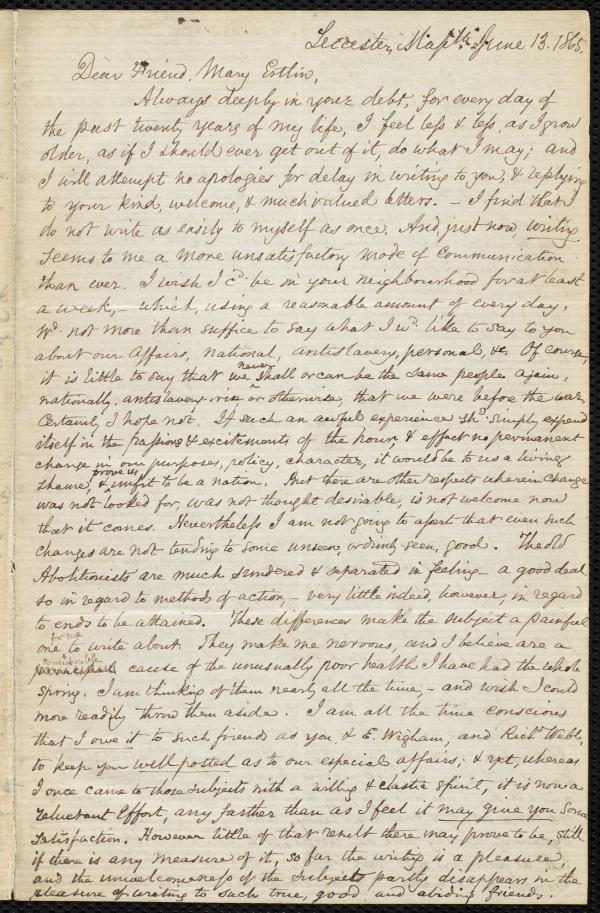 Leicester, Mass. June 13. 1865.
Dear Friend, Mary Estlin,
Always deeply in your debt, for every day of
the past twenty years of my life, I feel less & less, as I grow
older, as if I should ever get out of it, do what I may; and
I will attempt no apologies for delay in writing to you, & replying
to your kind, welcome, & much valued letters. – I find that I
do not write as easily to myself as once. And, just now, writing
seems to me a more unsatisfactory mode of communication
than ever. I wish I cd. be in your neighbourhood for at least
a week, – which, using a reasonable amount of every day,
wd. not more than suffice to say what I wd. like to say to you
about our affairs, national, antislavery, personal, &c. Of course,
it is little to say that we never shall or can be the same people again,
nationally, antislavery-wise or otherwise, that we were before the war.
Certainly I hope not. If such an awful experience shd. simply expend
itself in the passions & excitements of the hour, & effect no permanent
change in our purposes, policy, character, it would be to us a living
shame, & prove us unfit to be a nation. But there are other respects wherein change
was not looked for, was not thought desirable, is not welcome now
that it comes. Nevertheless I am not going to assert that even such
changes are not tending to some unseen, or dimly seen, good. The old
Abolitionists are much sundered & separated in feeling – a good deal
so in regard to methods of action, – very little indeed, however, in regard
to ends to be attained. These differences make the subject a painful
one for me to write about. They make me nervous, and I believe are a
considerable cause of the unusually poor health I have had the whole
spring. I am thinking of them nearly all the time, – and wish I could
more readily throw them aside. I am all the time conscious
that I owe it to such friends as you, & E. Wigham, and Richd. Webb,
to keep you well posted as to our especial affairs; & yet, whereas
I once came to those subjects with a willing & elastic spirit, it is now a
reluctant effort, any farther than as I feel it may give you some
satisfaction. However little of that result there may prove to be, still
if there is any measure of it, so far the writing is a pleasure,
and the unwelcomeness of the subjects partly disappears in the
pleasure of writing to such true, good and abiding friends.